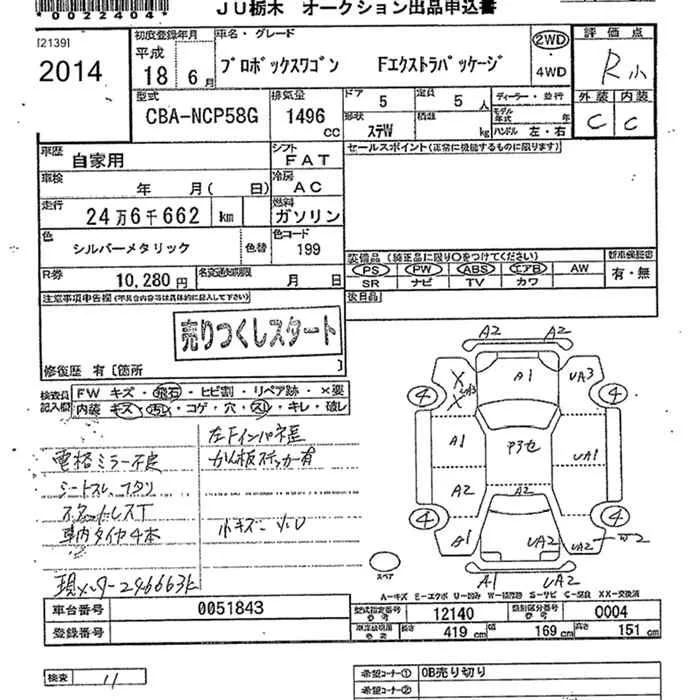 *0022404*
JU栃木 オークション出品申込書
[2139]
2014
初度登録年月
平成
18年 6月
車名・グレード
プロボックスワゴン Fエクストラパッケージ
2WD
・4WD
評価点
R小
外装 内装
C C
型式
CBA-NCP58G
排気量
1496
cc
ドア 5
定員 5人
形状 ステW
積載 kg
ディーラー・並行
モデル年式 年
ハンドル 左・右
車歴 自家用
シフト FAT
セールスポイント(正常に機能するものに限ります)
車検 年 月( 日)
冷房 AC
走行 24万6千662 km
燃料 ガソリン
色 シルバーメタリック
色替
色コード 199
装備品(純正品に限り○をつけてください)
新車保証書
PS PW ABS エアB AW
有・無
SR ナビ TV カワ
R券 10,280円
名変通知期限 月 日
後日品
注意事項申告欄(不具合内容等は具体的に記入して下さい)
売りつくしスタート
修復歴 有 [箇所 ]
検査員記入欄
FW キズ・飛石・ヒビ割・リペア跡・×要
内装 キズ・汚レ・コゲ・穴・スレ・キレ・破レ
左Fインパネ歪
電格ミラー不良 かん板ステッカー有
シートスレ、コゲ
車内タイヤ4本 小キズ
現メーター246663k
A2 A2
A1 UA3
X
X
4 4
A1 UA1
A2 A2
4 4
UA2 UA2
A1 UA2
スペア
A-キズ E-エクボ U-凹み W-補修跡 S-サビ C-腐食 XX-交換済
車台番号 0051843
型式指定番号 12140
類別区分番号 0004
登録番号
長さ 419cm 幅 169cm 高さ 151cm
検査 11
希望コーナー① OB売り切り
希望コーナー②